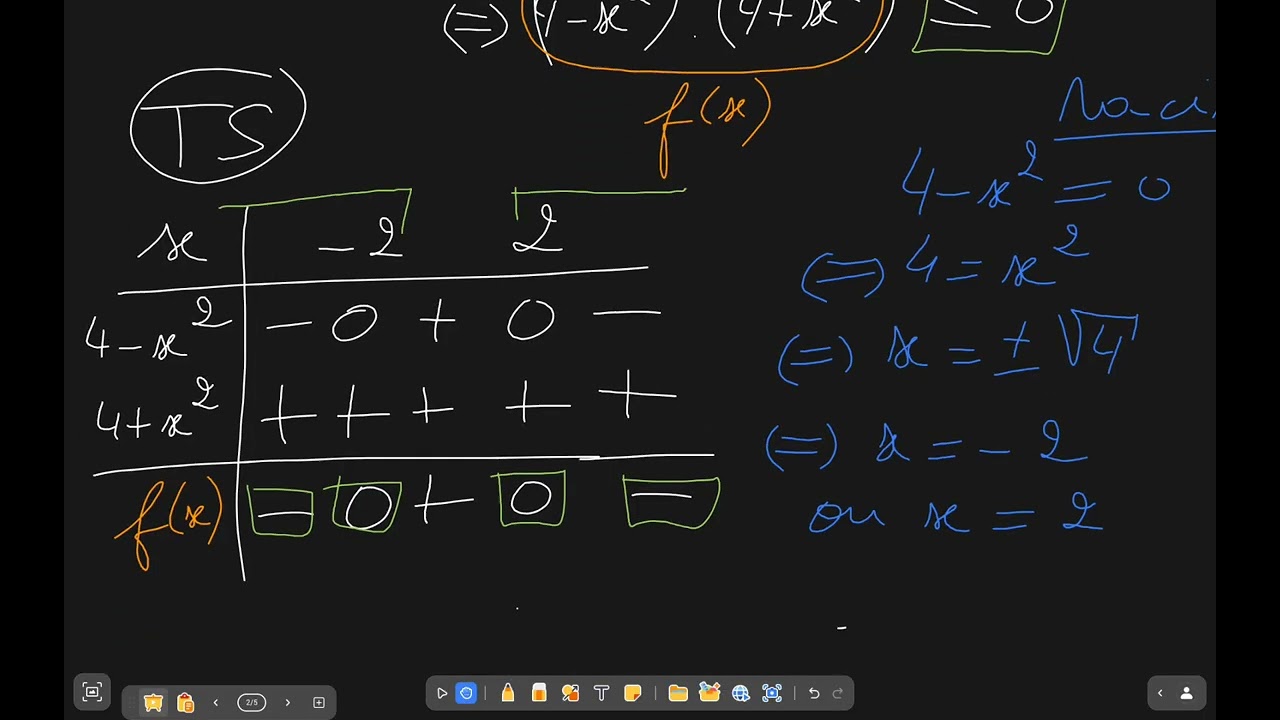 (=) (4-x²) . (4+x²) ≤ 0
f(x)
TS
x -2 2
4-x² - 0 + 0 -
4+x² + + + + +
f(x) - 0 + 0 -
4-x² = 0
(=) 4 = x²
(=) x = ± √4
(=) x = - 2
ou x = 2
2/5
T